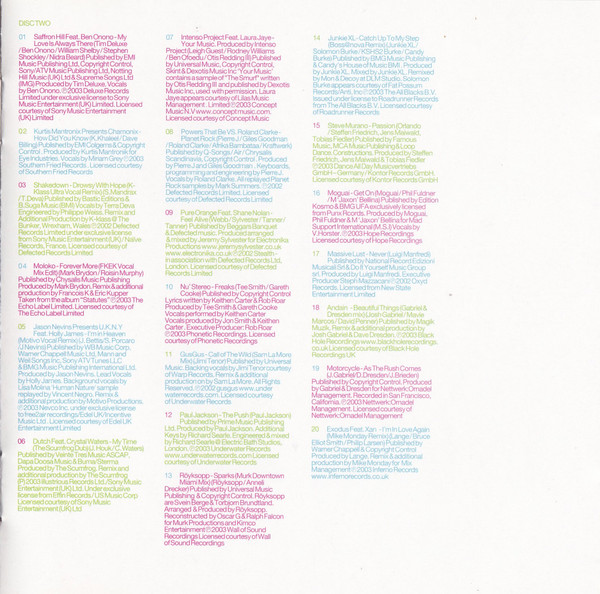 DISC TWO
01 Saffron Hill Feat. Ben Onono - My
Love Is Always There (Tim Deluxe
/ Ben Onono / William Shelby / Stephen
Shockley / Nidra Beard) Published by EMI
Music Publishing Ltd, Copyright Control,
Sony/ATV Music Publishing Ltd, Notting
Hill Music (UK) Ltd & Supreme Songs Ltd
(IMG) Produced by Tim Deluxe. Vocals
by Ben Onono. ℗2003 Deluxe Records
Limited under exclusive license to Sony
Music Entertainment (UK) Limited. Licensed
courtesy of Sony Music Entertainment
(UK) Limited
02 Kurtis Mantronix Presents Chamonix -
How Did You Know (K. Khaleel / Dave
Billing) Published by EMI Colgems & Copyright
Control. Produced by Kurtis Mantronik for
Eye Industries. Vocals by Miriam Grey ℗2003
Southern Fried Records. Licensed courtesy of
Southern Fried Records
03 Shakedown - Drowsy With Hope (K-
Klass Ultra Vocal Remix) (S. Mandrax
/ T. Deva) Published by Bastic Editions &
B.Suga Music (BMI) Vocals by Terra Deva
Engineered by Philippe Weiss. Remix and
Additional Production by K-klass @ The
Bunker, Wrexham, Wales ℗2002 Defected
Records Limited under exclusive license
from Sony Music Entertainment (UK) / Naive
Records, France. Licensed courtesy of
Defected Records Limited
04 Moloko - Forever More (FKEK Vocal
Mix Edit) (Mark Brydon / Roisin Murphy)
Published by Chrysalis Music Publishing
Produced by Mark Brydon. Remix & additional
production by Francois K & Eric Kupper
Taken from the album "Statues" ℗2003 The
Echo Label Limited. Licensed courtesy of
The Echo Label Limited
05 Jason Nevins Presents U.K.N.Y
Feat. Holly James - I'm in Heaven
(Motivo Vocal Remix) (J. Bettis / S. Porcaro
/ J. Nevins) Published by WB Music Corp,
Warner Chappell Music Ltd, Mann and
Weil Songs Inc, Sony ATV Tunes LLC
& BMG Music Publishing International Ltd.
Produced by Jason Nevins. Lead Vocals
by Holly James. Background vocals by
Lisa Molina 'Human Nature' sample
replayed by Vincent Negro. Remix &
additional production by Motivo Productions.
℗2003 Nevco Inc. under exclusive license
to free2air recordings/Edel UK/Incentive
Music Ltd. Licensed courtesy of Edel UK
Entertainment Limited
06 Dutch Feat. Crystal Waters - My Time
(The Scumfrog Dub) (J. Houk / C. Waters)
Published by Veinte Tres Music ASCAP,
Dapa Doosa Music & Bluma/Sterma
Produced by The Scumfrog. Remix and
additional production by The Scumfrog
(P)2003 Illustrious Records Ltd./Sony Music
Entertainment (UK) Ltd. Under exclusive
license from Effin Records / US Music Corp.
Licensed courtesy of Sony Music
Entertainment (UK) Ltd
07 Intenso Project Feat. Laura Jaye -
Your Music. Produced by Intenso
Project (Leigh Guest / Rodney Williams
/ Ben Ofoedu / Otis Redding III) Published
by Universal Music, Copyright Control,
Skint & Dexotis Music Inc 'Your Music'
contains a sample of "The Smurf" written
by Otis Redding III and published by Dexotis
Music Inc, used with permission. Laura
Jaye appears courtesy of Lilas Music
Management. Limited ℗2003 Concept
Music N.V www.conceptmusic.com.
Licensed courtesy of Concept Music
08 Powers That Be VS. Roland Clarke -
Planet Rock (Pierre J / Giles Goodman
/ Roland Clarke / Afrika Bambattaa / Kraftwerk)
Published by Q-Songs / Air / Chrysalis
Scandinavia, Copyright Control. Produced
by Pierre J and Giles Goodman. Keyboards,
programming and engineering by Pierre J
Vocals by Roland Clarke. All replayed Planet
Rock samples by Mark Summers. ℗2002
Defected Records Limited. Licensed
courtesy of Defected Records Limited
09 Pure Orange Feat. Shane Nolan -
Feel Alive (Webb / Sylvester / Tanner /
Tanner) Published by Beggars Banquet
& Defected music. Produced arranged
& mixed by Jeremy Sylvester for Electronika
Productions www.jeremysylvester.co.uk.
www.electronika.co.uk ℗2002 Stealth -
in association with Defected Records Ltd,
London. Licensed courtesy of Defected
Records Limited
10 Nu' Stereo - Freaks (Tee Smith / Gareth
Cooke) Published by Copyright Control
Lyrics written by Keithen Carter & Rob Roar
Produced by Tee Smith & Gareth Cooke
Vocals performed by Keithen Carter
Vocals produced by Jon Smith & Keithen
Carter. Executive Producer: Rob Roar
℗2003 Phonetic Recordings. Licensed
courtesy of Phonetic Recordings.
11 Gus Gus - Call of The Wild (Sam La More
Mix) (Jimi Tenor) Published by Universal
Music. Backing vocals by Jimi Tenor courtesy
of Warp Records. Remix & additional
production by Sam La More. All Rights
Reserved. ℗2002 gusgus www.under
waterrecords.com. Licensed courtesy
of Underwater Records
12 Paul Jackson - The Push (Paul Jackson)
Published by Prime Music Publishing
Ltd. Produced by Paul Jackson. Additional
Keys by Richard Searle. Engineered & mixed
by Richard Searle @ Electric Bath Studios,
London. ℗2003 Underwater Records
www.underwaterrecords.com Licensed
courtesy of Underwater Records
13 Röyksopp - Sparks (Murk Downtown
Miami Mix) (Röyksopp / Anneli
Drecker) Published by Universal Music
Publishing & Copyright Control. Röyksopp
are Svein Berge & Torbjørn Brundtland.
Arranged & Produced by Röyksopp.
Reconstructed by Oscar G & Ralph Falcon
for Murk Productions and Kimco
Entertainment ℗2003 Wall of Sound
Recordings Licensed courtesy of Wall
of Sound Recordings
14 Junkie XL - Catch Up To My Step
(Boss@nova Remix) (Junkie XL /
Solomon Burke / KSHS2 Burke / Candy
Burke) Published by BMG Music Publishing
& Candy's House of Music BMI. Produced
by Junkie XL. Mixed by Junkie XL. Remixed
by Mon & Decoy at DLM Studio. Solomon
Burke appears courtesy of Fat Possum
Records/Anti, Inc. ℗2003 The All Blacks B.V.
Issued under license to Roadrunner Records
from The All Blacks B.V. Licensed courtesy
of Roadrunner Records
15 Steve Murano - Passion (Orlando
/ Steffen Friedrich, Jens Maiwald,
Tobias Fiedler) Published by Famous
Music, MCA Music Publishing & Loop
Dance Constructions. Produced by Steffen
Friedrich, Jens Maiwald & Tobias Fiedler
℗2003 Dance All Day Musicvertriebs
GmbH - Germany / Kontor Records GmbH.
Licensed courtesy of Kontor Records GmbH
16 Mogua - Get On (Mogua / Phil Fuldner
/ M' Jaxon' Bellina) Published by Edition
Kosmo & BMG UFA exclusively licensed
from Punx Rcords. Produced by Mogua,
Phil Fuldner & M' Jaxon' Bellina for Mad
Support International (M.S.I) Vocals by
V Horster. ℗2003 Hope Recordings
Licensed courtesy of Hope Recordings
17 Massive Lust - Never (Luigi Manfredi)
Published by National Record Edizioni
Musicali Srl & Do It Yourself Music Group
srl. Produced by Luigi Manfredi. Executive
Producer Steph Mazzacani ℗2002 Oxyd
Records. Licensed from New State
Entertainment Limited
18 Andain - Beautiful Things (Gabriel &
Dresden mix) (Josh Gabriel / Mavie
Marcos / David Penner) Published by Magik
Muzik. Remix & additional production by
Josh Gabriel & Dave Dresden. ℗2003 Black
Hole Recordings www.blackholerecordings.
co.uk Licensed courtesy of Black Hole
Recordings UK
19 Motorcycle - As The Rush Comes
(J. Gabriel / D. Dresden / J. Brenden)
Published by Copyright Control. Produced
by Gabriel & Dresden for Nettwerk/Omadei
Management. Recorded in San Francisco,
California. ℗2003 Nettwerk/Omadei
Management. Licensed courtesy of
Nettwerk/Omadei Management
20 Exodus Feat. Xan - I'm In Love Again
(Mike Monday Remix) (Lange / Bruce
Elliot Smith / Philip Larsen) Published by
Warner Chappell & Copyright Control
Produced by Lange. Remix & additional
production by Mike Monday for Mix
Management ℗2003 Inferno Records
www.infernorecords.co.uk